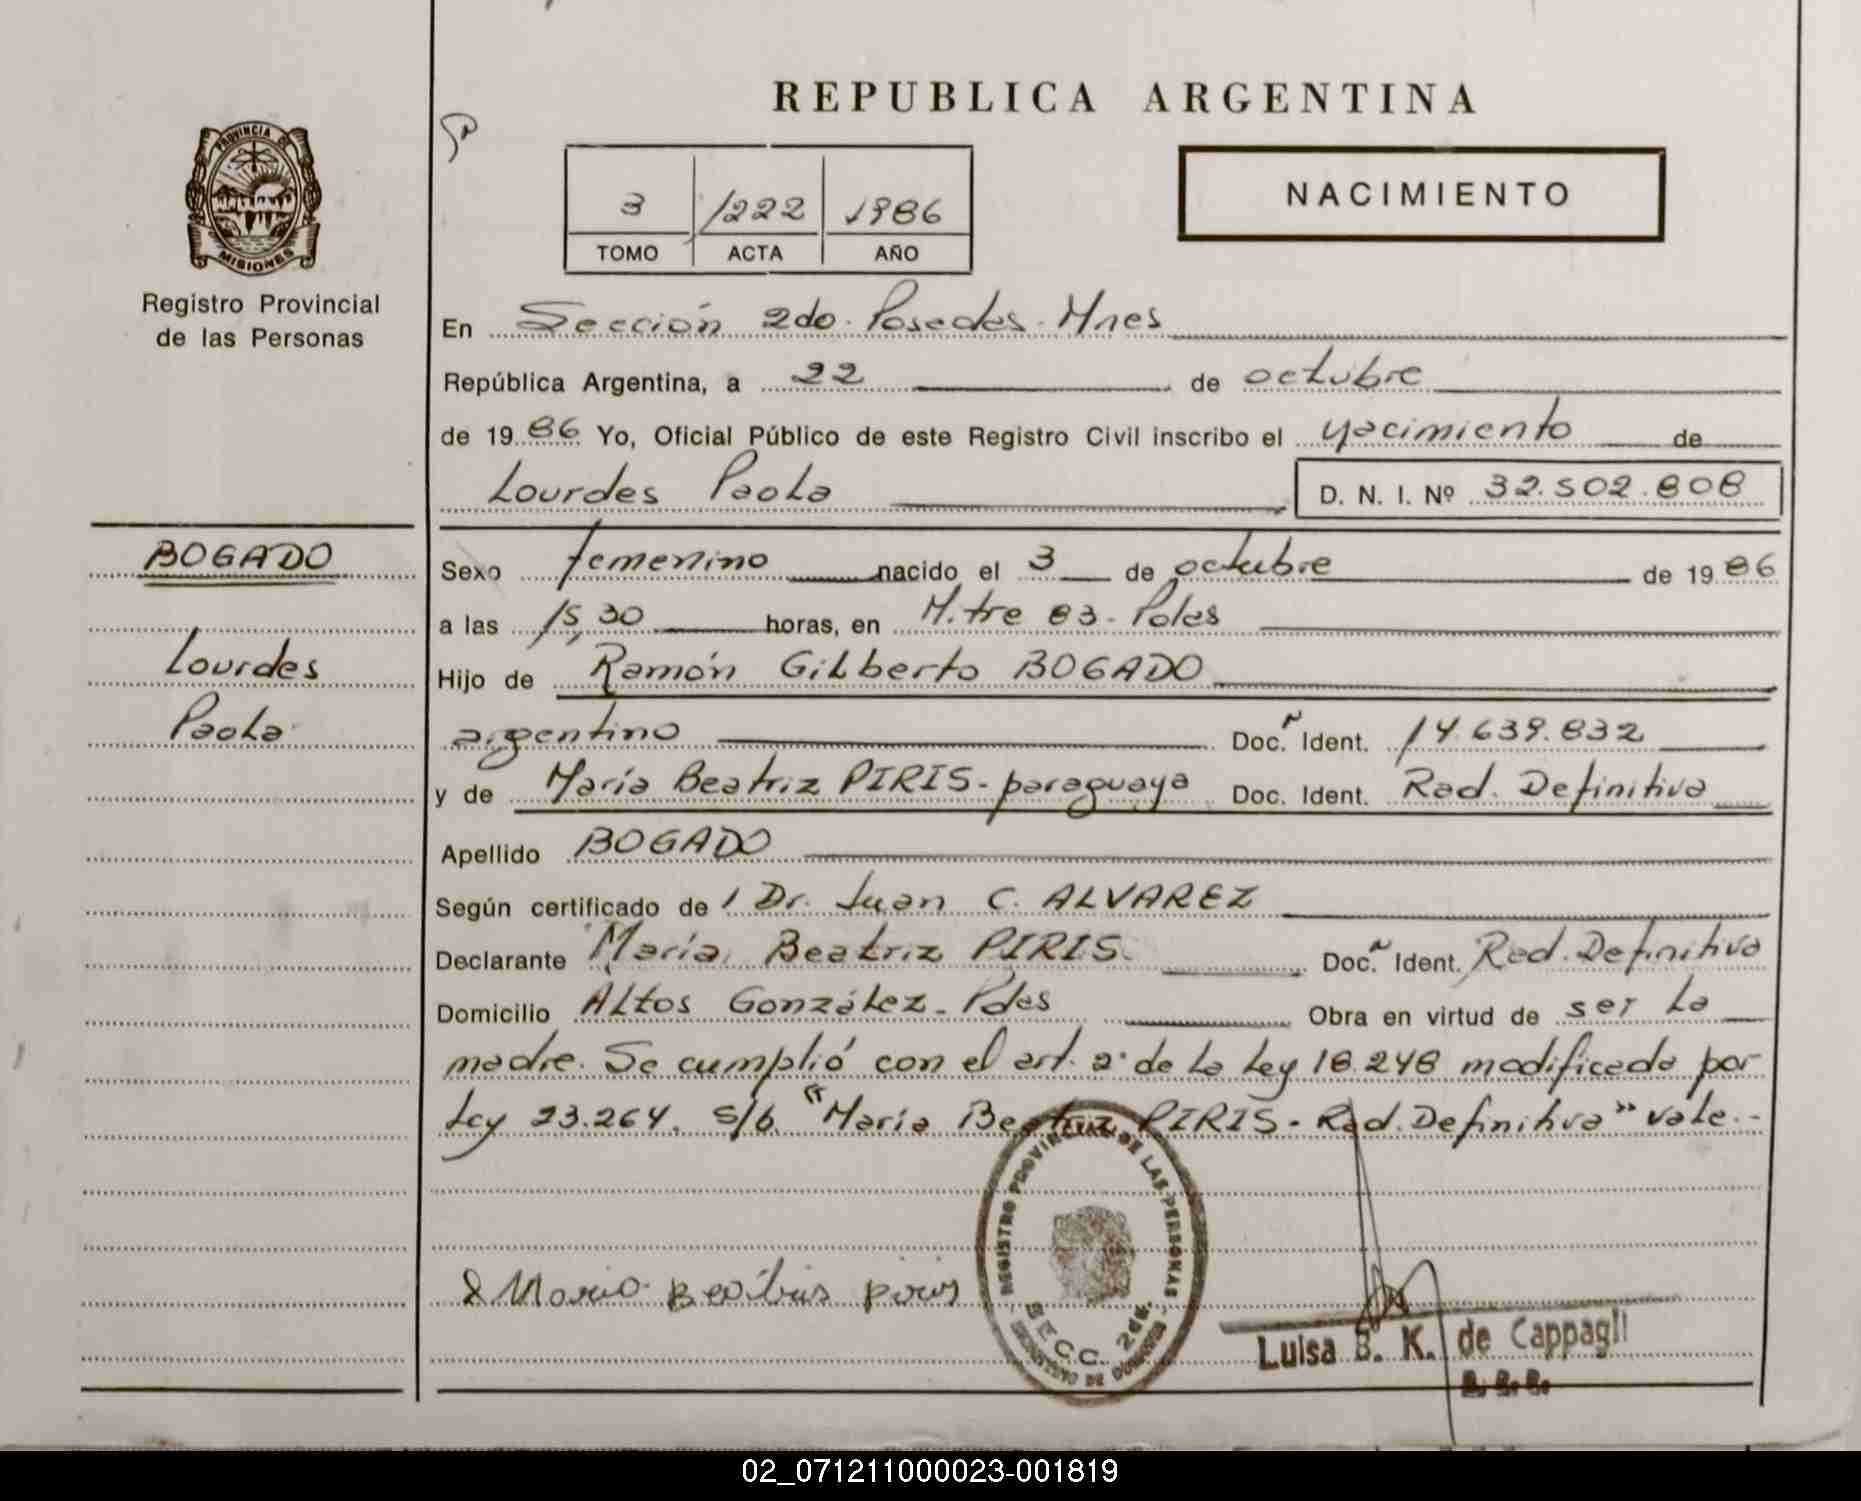 REPUBLICA ARGENTINA
PROVINCIA DE
MISIONES
Registro Provincial
de las Personas
3 1222 1986
TOMO ACTA AÑO
NACIMIENTO
En Sección 2da. Posadas. Mnes
República Argentina, a 22 de octubre
de 1986 Yo, Oficial Público de este Registro Civil inscribo el nacimiento de
Lourdes Paola D. N. I. Nº 32.502.808
BOGADO
Lourdes
Paola
Sexo femenino nacido el 3 de octubre de 1986
a las 15,30 horas, en M.tre 83. Pdas
Hijo de Ramón Gilberto BOGADO
argentino Doc. Ident. 14.639.832
y de María Beatriz PIRIS - paraguaya Doc. Ident. Rad. Definitiva
Apellido BOGADO
Según certificado de l Dr. Juan C. ALVAREZ
Declarante María Beatriz PIRIS. Doc. Ident. Rad. Definitiva
Domicilio Altos González. Pdas Obra en virtud de ser la
madre. Se cumplió con el art. 2° de la Ley 18.248 modificada por
Ley 23.264. s/b. "María Beatriz PIRIS - Rad. Definitiva" vale.-
REGISTRO PROVINCIAL DE LAS PERSONAS
SECC. 2da.
Luisa B. K. de Cappagli
02_071211000023-001819